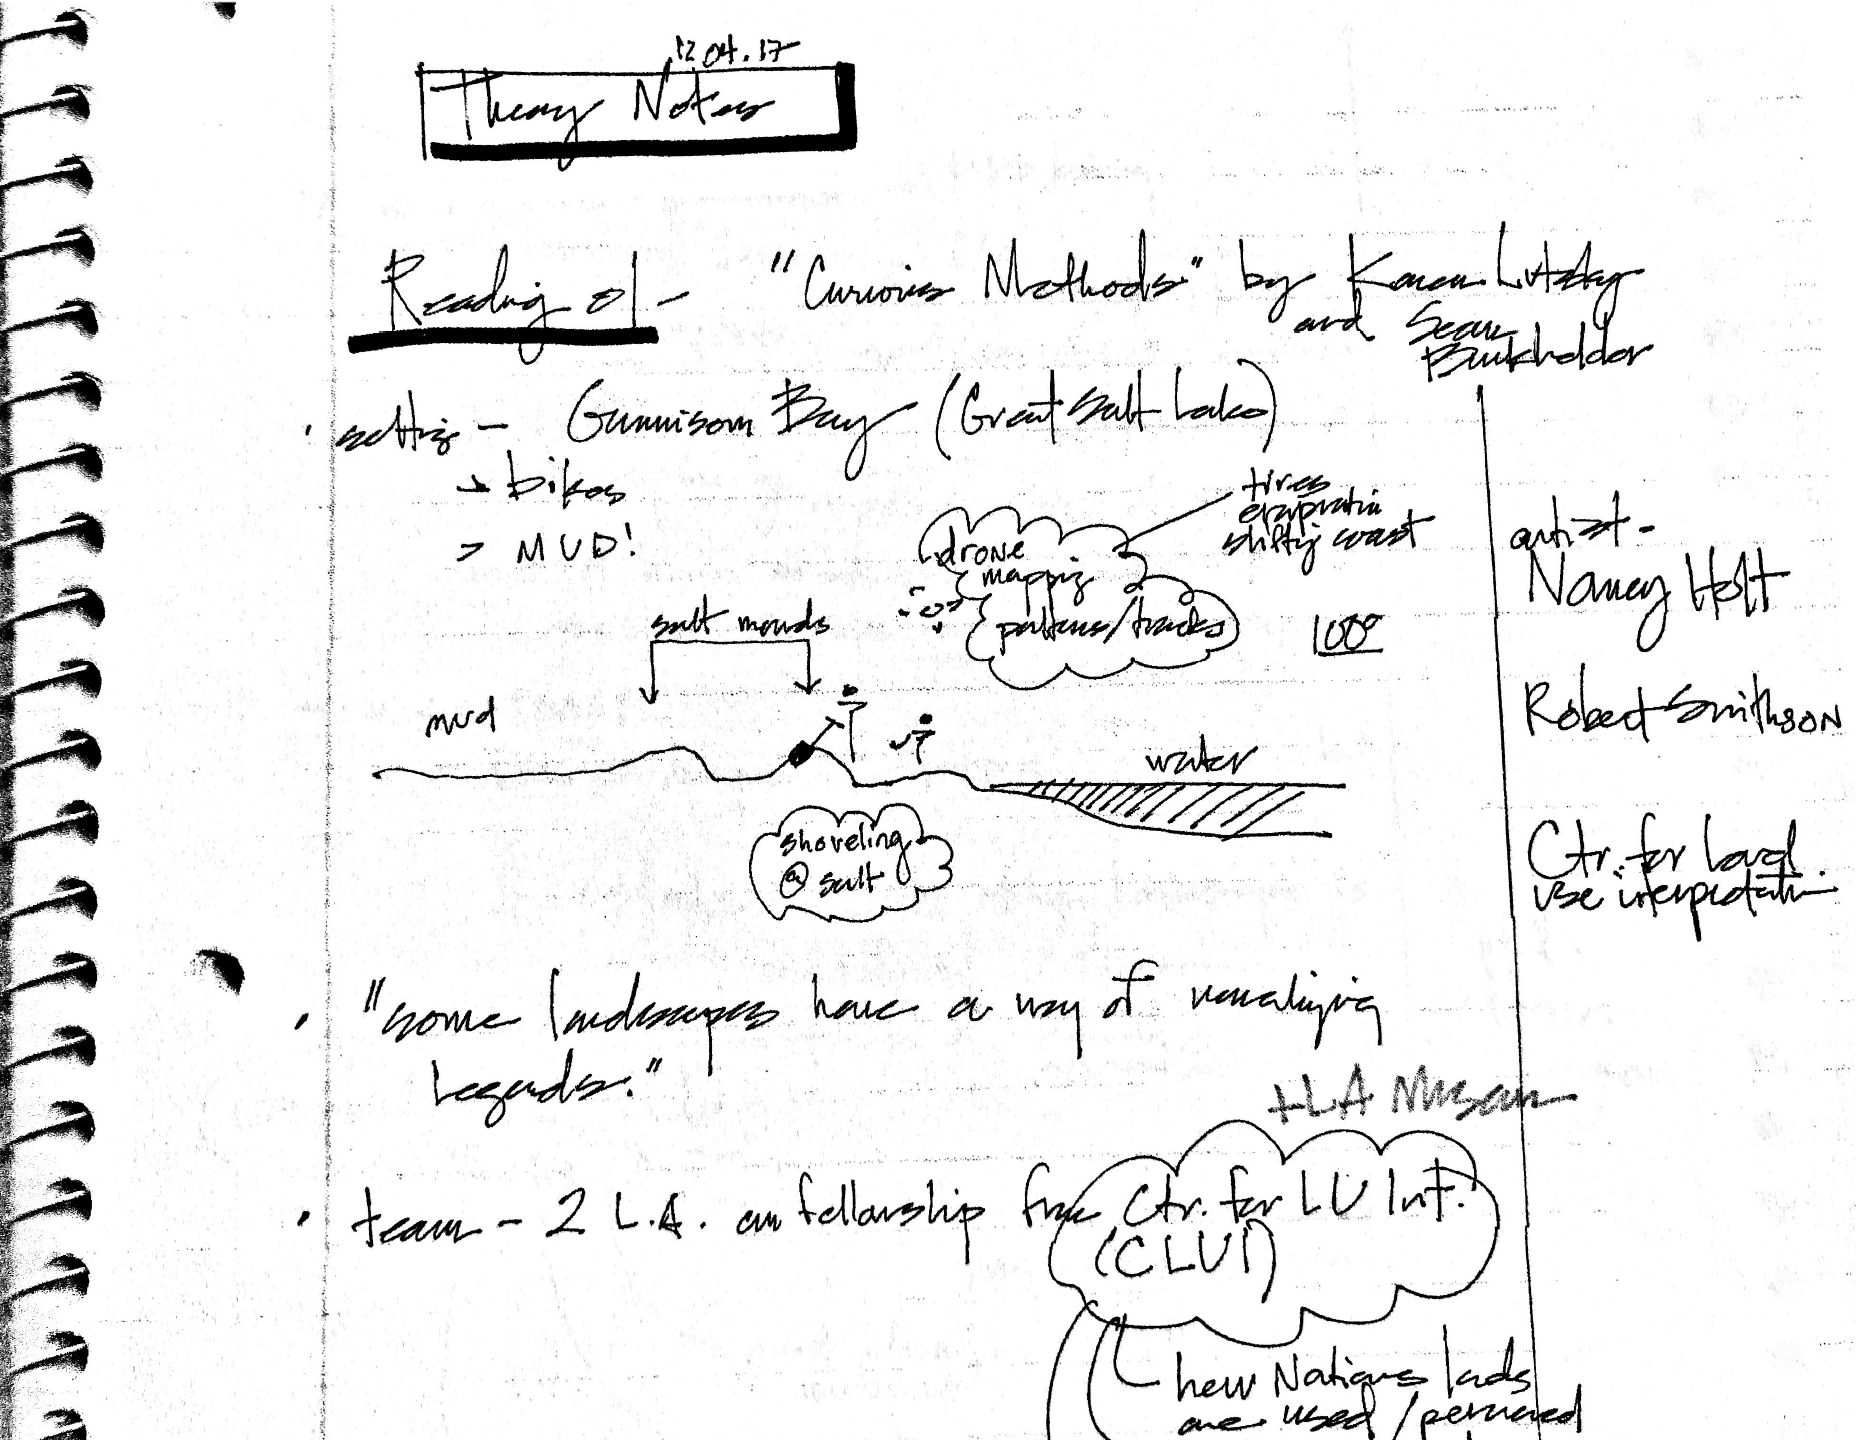 12.04.17
Theory Notes
Reading 01 - "Curious Methods" by Karen Lutsky
and Sean
Burkholder
· setting - Gunnison Bay (Great Salt Lake)
→ bikes
> MUD!
tires
evaporation
shifting coast
drone
mapping
patterns/tracks
100°
salt mounds
mud
water
shoveling
@ salt
artist -
Nancy Holt
Robert Smithson
Ctr. for Land
Use interpretation
· "some landscapes have a way of
Legends."
+LA Museum
· team - 2 L.A. on fellowship from Ctr. for LU Int.
(CLUI)
how Nations lands
are used / perceived